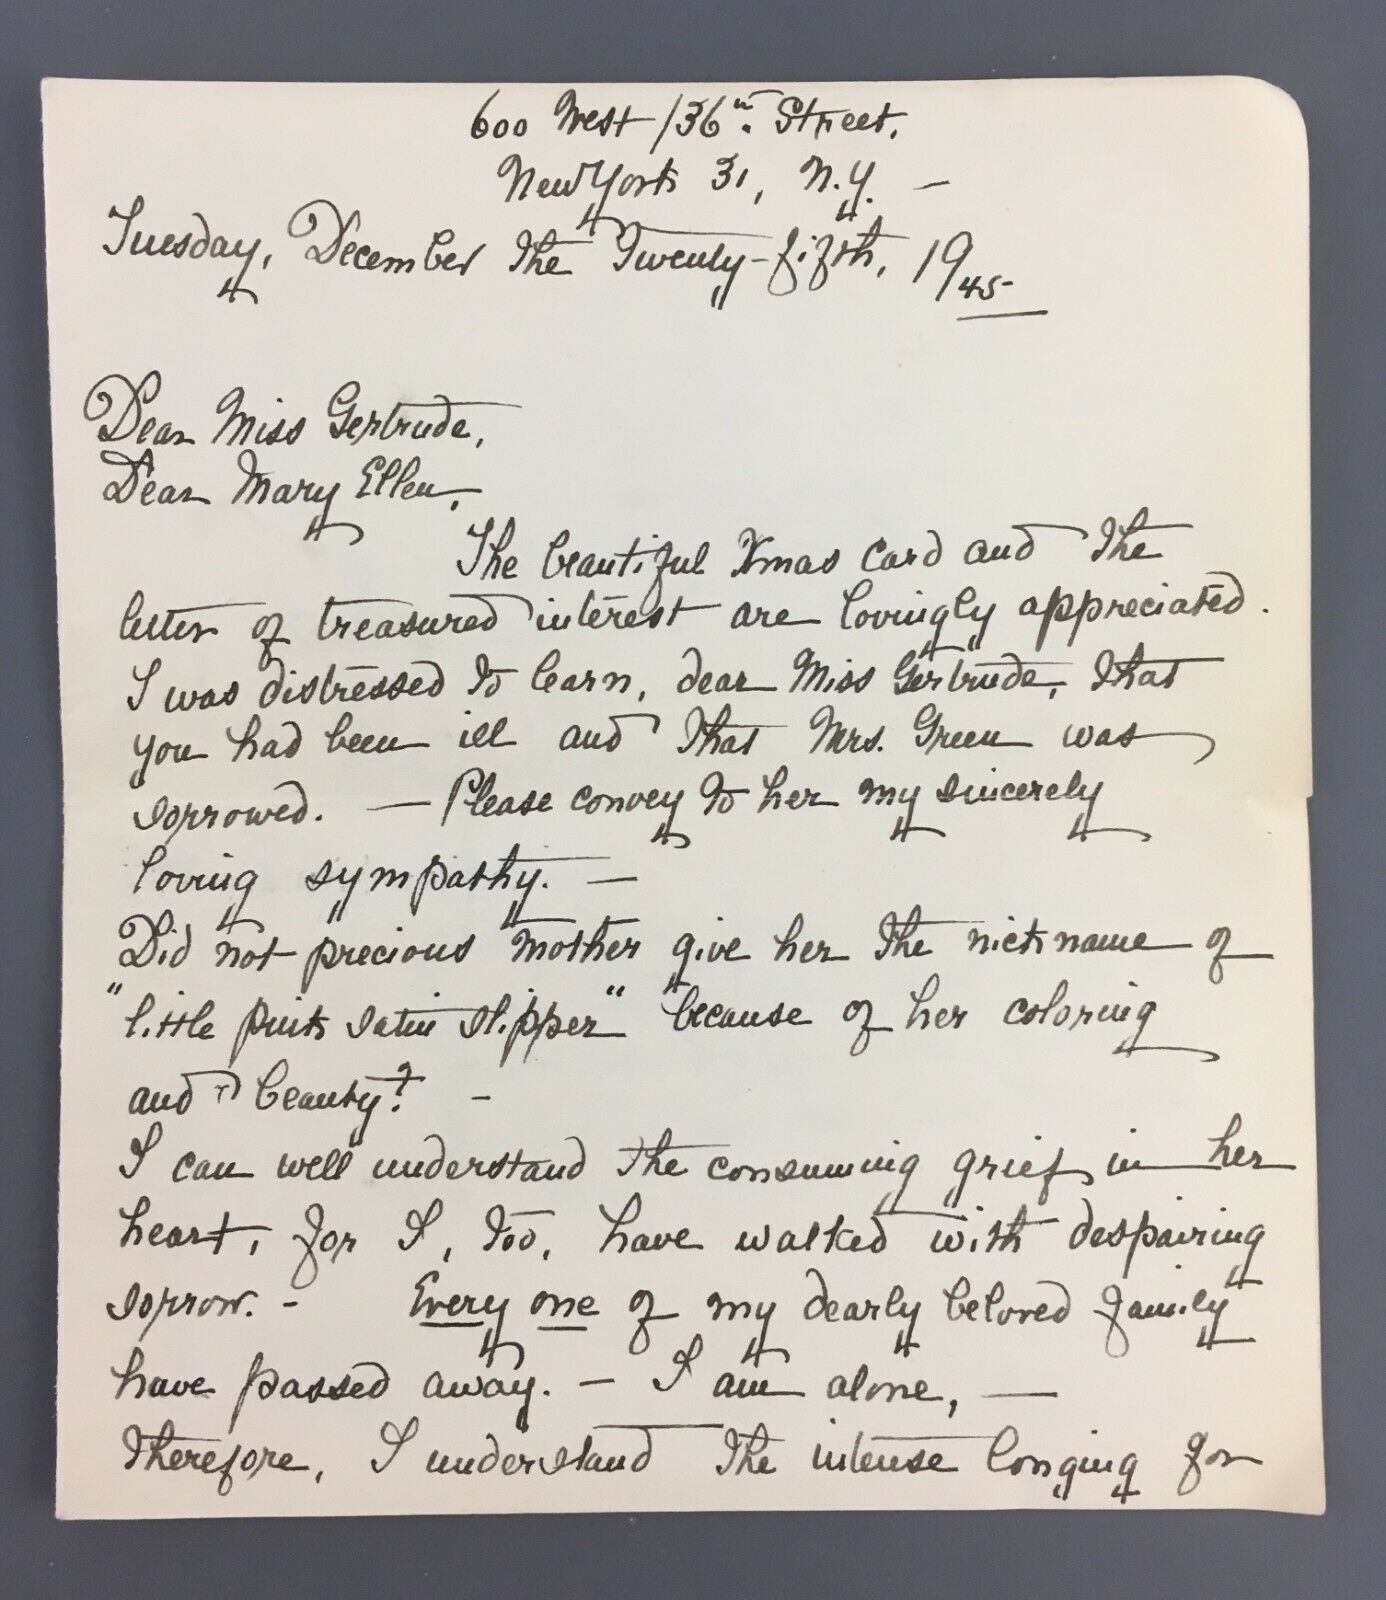 600 West 136th. Street.
New York 31, N.Y. —
Tuesday, December the Twenty-fifth, 1945
Dear Miss Gertrude,
Dear Mary Ellen,
The beautiful Xmas card and the
letter of treasured interest are lovingly appreciated.
I was distressed to learn, dear Miss Gertrude, that
you had been ill and that Mrs. Green was
sorrowed. — Please convey to her my sincerely
loving sympathy. —
Did not precious Mother give her the nickname of
"little pink satin slipper" because of her coloring
and beauty? -
I can well understand the consuming grief in her
heart, for I, too, have walked with despairing
sorrow. - Every one of my dearly beloved family
have passed away. - I am alone, —
Therefore, I understand the intense longing for